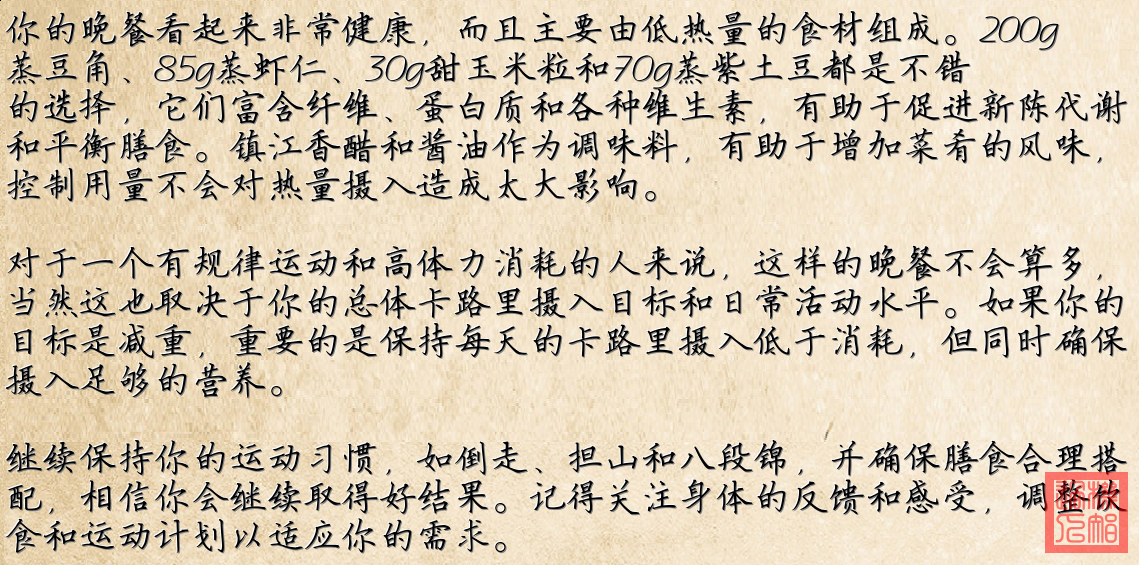 你的晚餐看起来非常健康，而且主要由低热量的食材组成。200g
蒸豆角、85g蒸虾仁、30g甜玉米粒和70g蒸紫土豆都是不错
的选择，它们富含纤维、蛋白质和各种维生素，有助于促进新陈代谢
和平衡膳食。镇江香醋和酱油作为调味料，有助于增加菜肴的风味，
控制用量不会对热量摄入造成太大影响。
对于一个有规律运动和高体力消耗的人来说，这样的晚餐不会算多，
当然这也取决于你的总体卡路里摄入目标和日常活动水平。如果你的
目标是减重，重要的是保持每天的卡路里摄入低于消耗，但同时确保
摄入足够的营养。
继续保持你的运动习惯，如倒走、担山和八段锦，并确保膳食合理搭
配，相信你会继续取得好结果。记得关注身体的反馈和感受，调整饮
食和运动计划以适应你的需求。